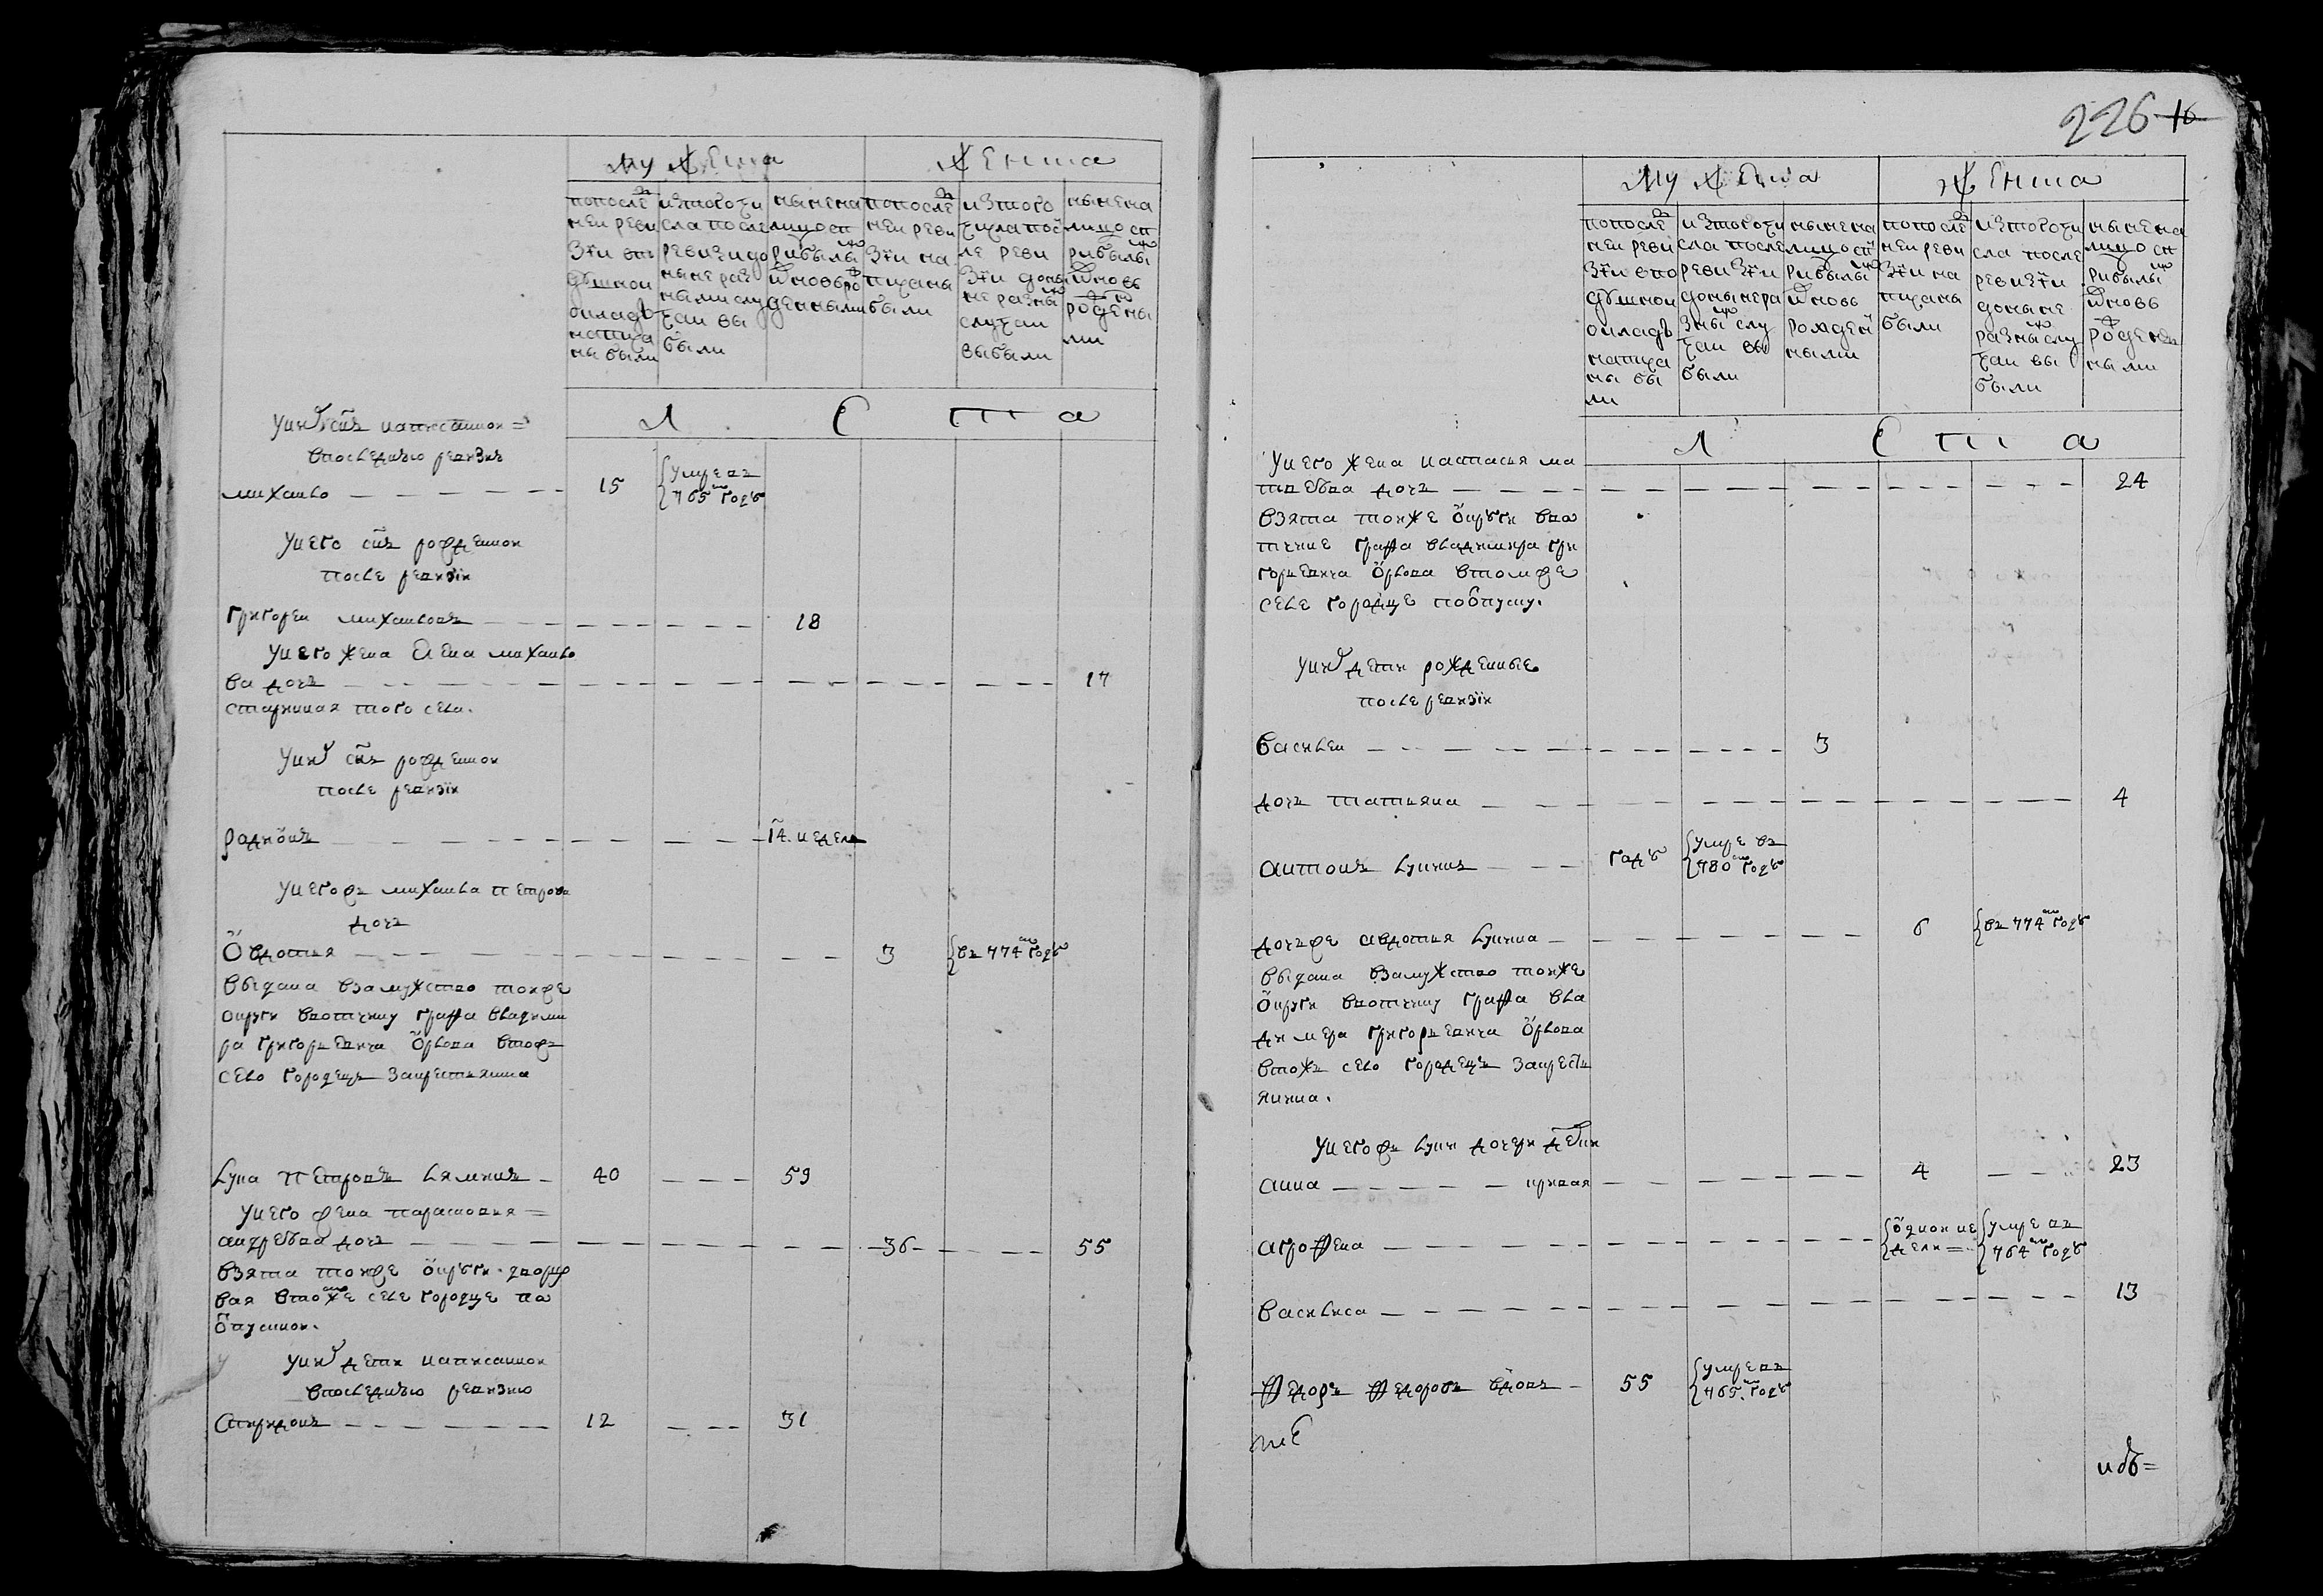 мужеска
женска
попослѣ
ней реви
зїи въ
душной
окладъ
написа
ны были
изтогочи
сла после
ревизи до
ныне раз
ными слу
чаи вы
были
ныне на
лицо сп
рибылы
и вновь ро
жденными
попослѣ
ней реви
зїи на
писаны
были
изтого
числа пос
ле реви
зїи доны
не разны
случаи
выбыли
ныне на
лицо сп
рибылы
и вновь
рожены
ми
Л Е т а
у них сынъ написанной =
впоследнюю ревизию
михаило 15 умре въ 765м году
у него сынъ рожденной
после ревизїи
григорей михаиловъ 18
у него жена елена михаило
ва дочь 17
старинная того села.
у них сынъ рожденной
после ревизїи
родионъ 14. недель
у негожъ михаила петрова
дочь
овдотья 3 въ 774м году
выдана взамужство тойже
округи ввотчину графа владими
ра григорьевича орлова втожъ
село городецъ закрестьянина
лука петровъ ляминъ 40 59
у него жена парасковья =
андреева дочь 36 55
взята тойже округи. дворцо
вая втомже селе городце по
отпускной.
у них дети написанной
впоследнюю ревизию
спиридонъ 12 31
226 16
мужеска
женска
попослѣ
ней реви
зїи впо
душной
окладъ
написа
ны бы
ли
изтогочи
сла после
ревизїи
доныне ра
зны слу
чаи вы
были
ныне на
лицо сп
рибылы
и вновь
рожден
ными
попослѣ
ней реви
зїи на
писаны
были
изтогочи
сла после
ревизїи
доныне
разны слу
чаи вы
были
ныне на
лицо сп
рибылы
и вновь
рожден
ными
Л Е т а
у него жена настасья ма
твеева дочь 24
взята тойже округи вво
тчине графа владимира гри
горьевича орлова втомже
селе городце поотпуску.
у них дети рожденные
после ревизїи
василей 3
дочь татьяна 4
антонъ лукинъ году умре въ 780м году
дочьже авдотья лукина 6 въ 774м году
выдана взамужство тойже
округи ввотчину графа вла
димера григорьевича орлова
втожъ село городецъ закресть
янина.
у негожъ луки дочери девки
анна кривая 4 23
агрофена одной не дели = умре въ 764м году
василиса 13
федоръ федоровъ вдовъ 55 умре въ 765м. году